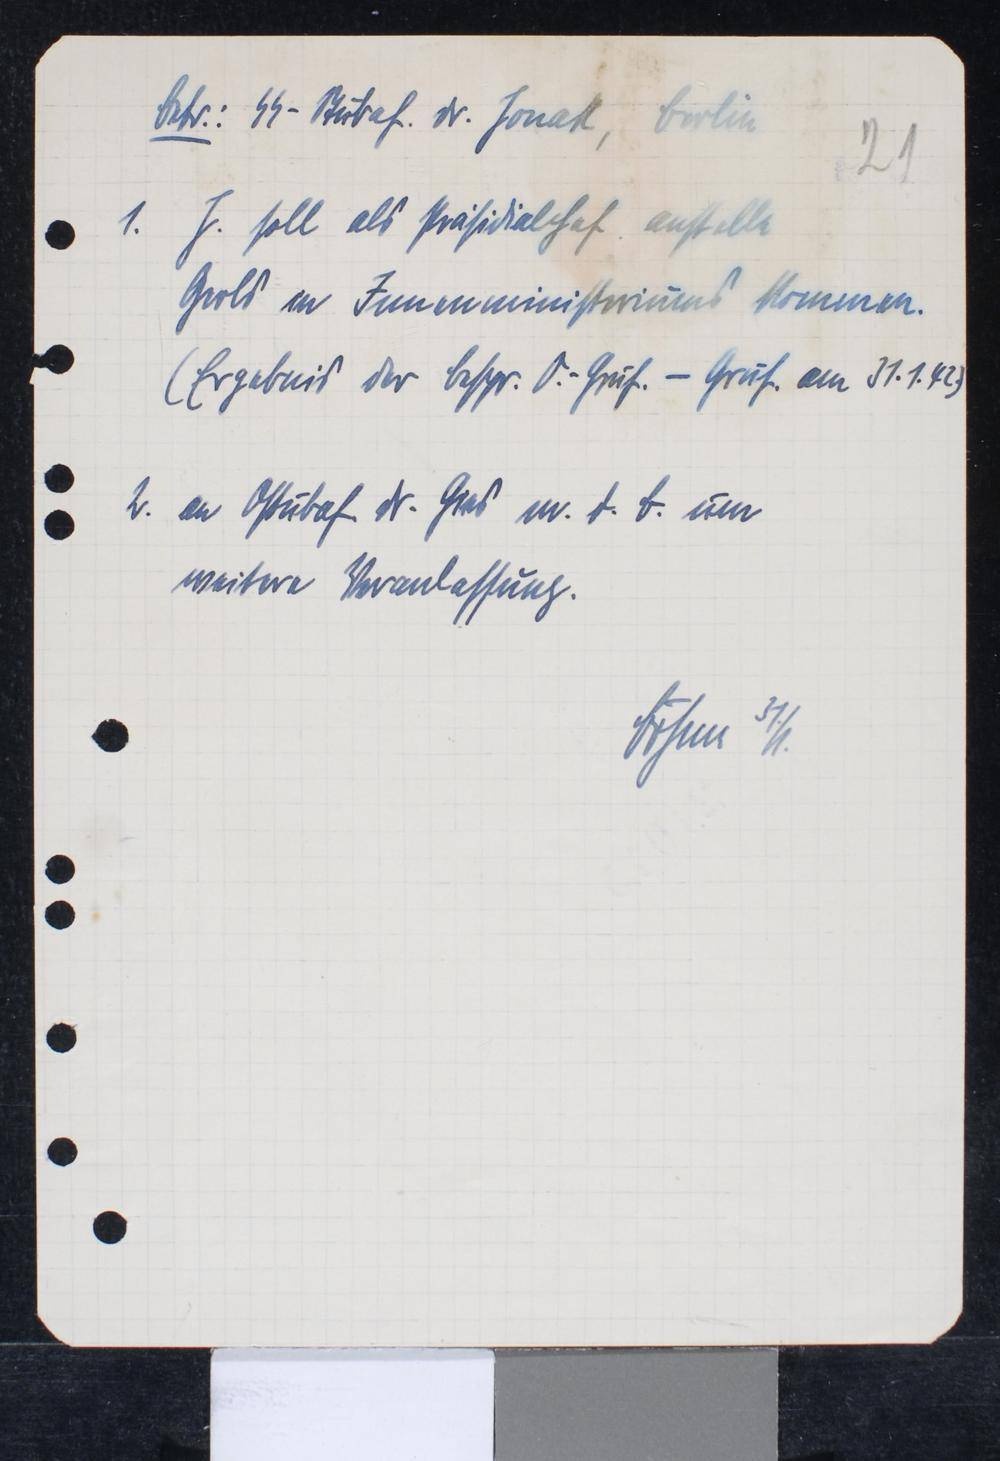 Betr.: SS-Stubaf. Dr. Jonak, Berlin
21
1. J. soll als Präsidialchef anstelle
Grols im Innenministeriums kommen.
(Ergebnis der Bespr. O.-Gruf. – Gruf. am 31.1.42)
2. an Ostubaf. Dr. Gies m. d. B. um
weitere Veranlassung.
Böhm 31/1.